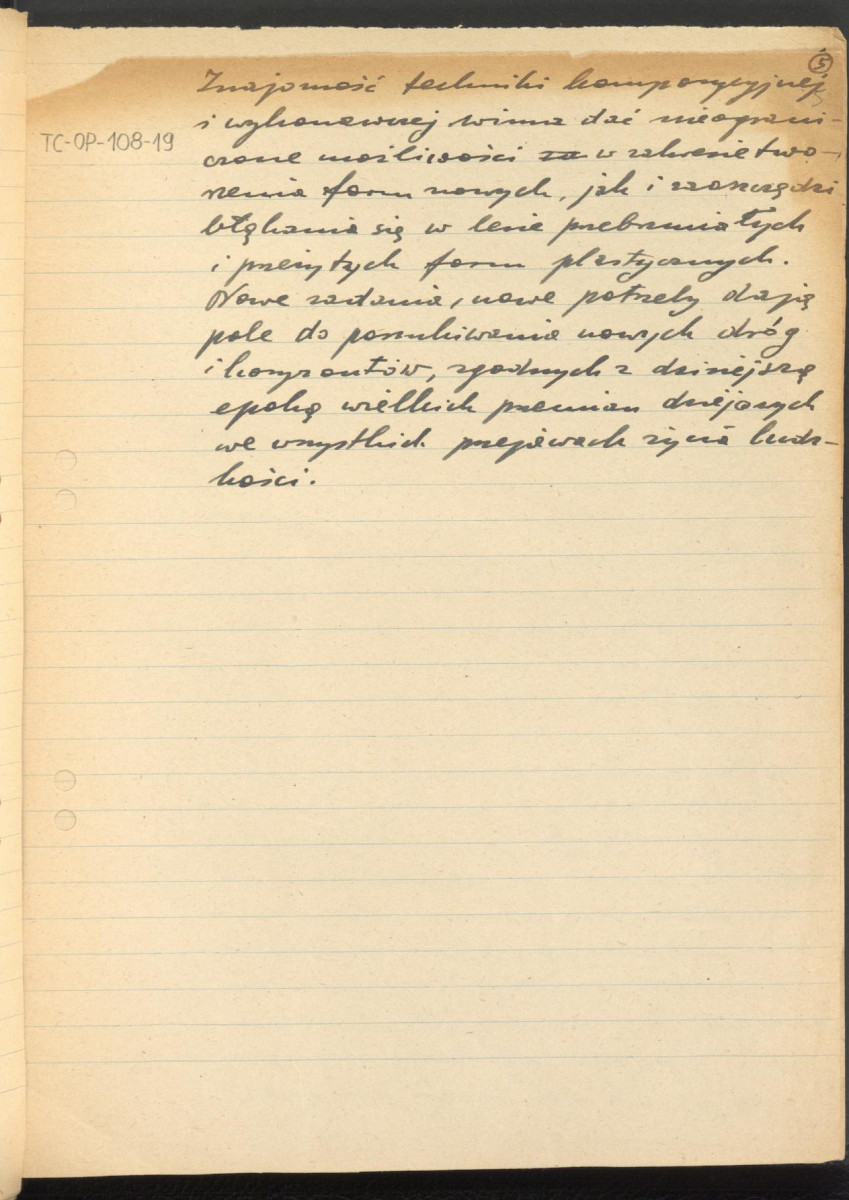 5
Znajomość techniki kompozycyjnej
i wykonawczej winna dać nieograni-
TC-OP-108-19
czone możliwości za w zakresie two-
rzenia form nowych, jak i zaoszczędzi
błąkania się w lesie przebrzmiałych
i przeżytych form plastycznych.
Nowe zadania, nowe potrzeby dają
pole do poszukiwania nowych dróg
i horyzontów, zgodnych z dzisiejszą
epoką wielkich przemian dziejowych
we wszystkich przejawach życia ludz-
kości.